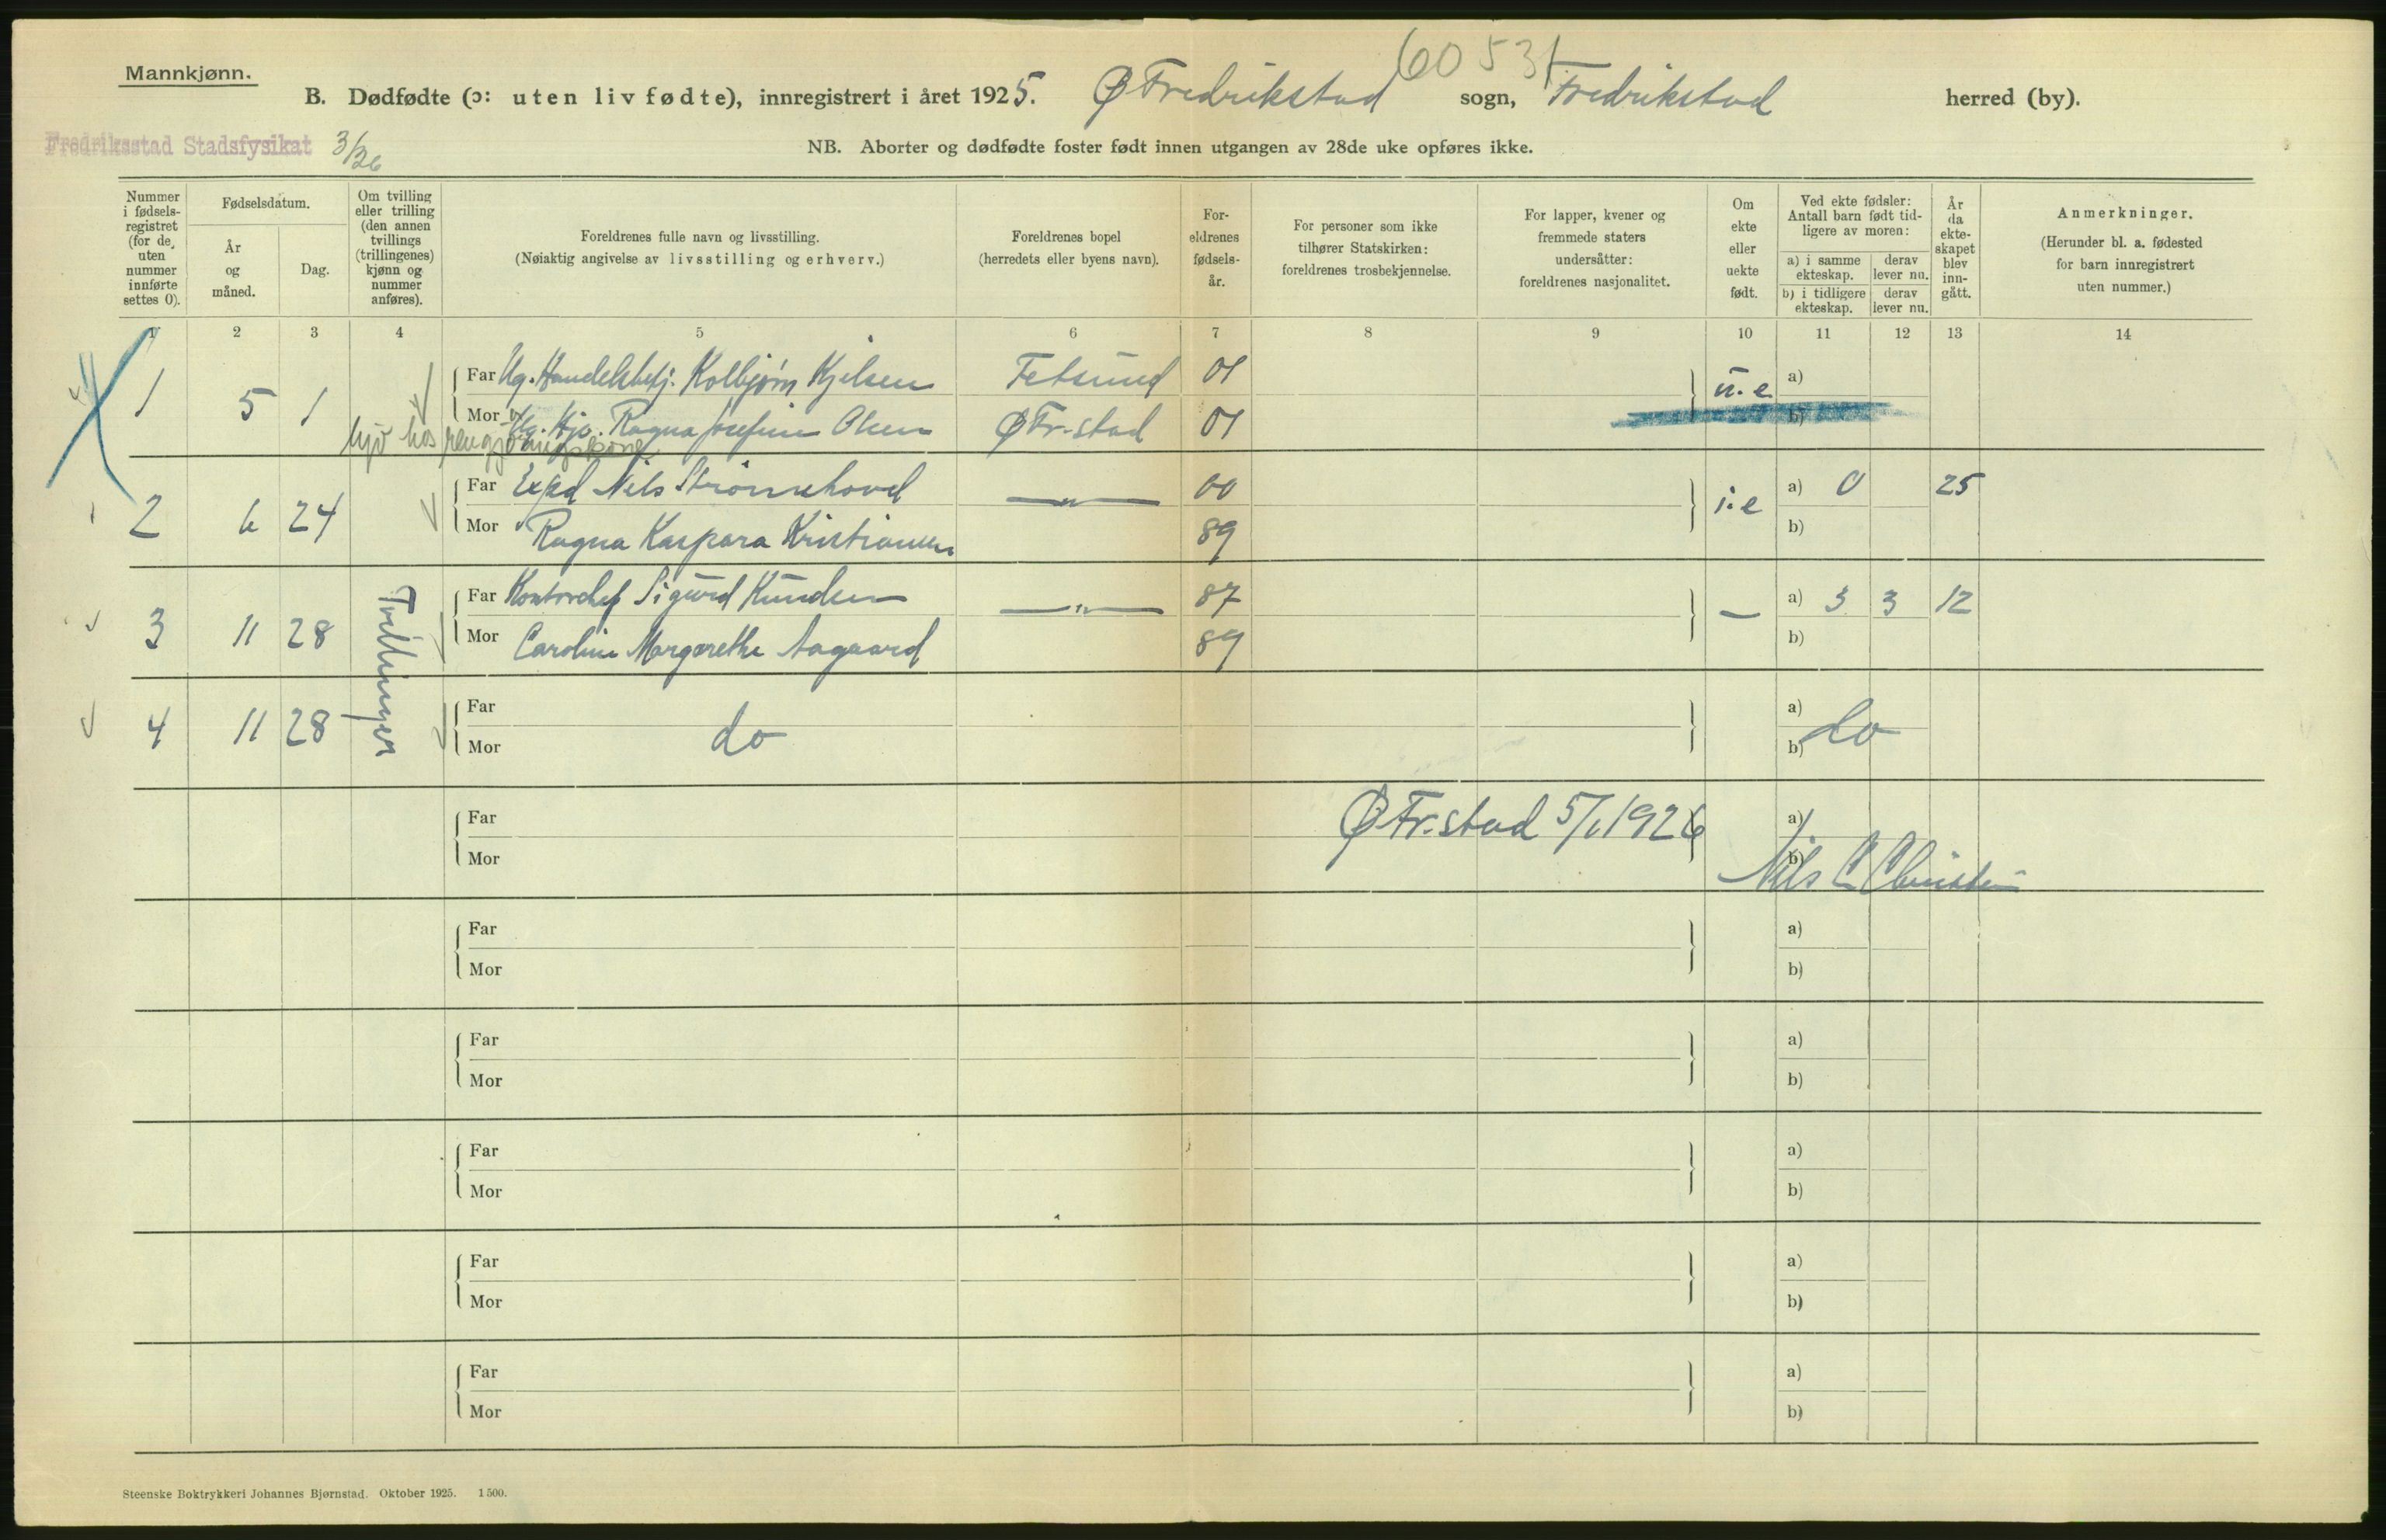 Mannkjønn.
60531
B. Dødfødte (ɔ: uten liv fødte), innregistrert i året 1925. Ø Fredrikstad sogn, Fredrikstad herred (by).
Fredriksstad Stadsfysikat 3/26
NB. Aborter og dødfødte foster født innen utgangen av 28de uke opføres ikke.
Nummer i fødselsregistret (for de uten nummer innførte settes 0).
Fødselsdatum.
År og måned.
Dag.
Om tvilling eller trilling (den annen tvillings (trillingenes) kjønn og nummer anføres).
Foreldrenes fulle navn og livsstilling.
(Nøiaktig angivelse av livsstilling og erhverv.)
Foreldrenes bopel
(herredets eller byens navn).
Foreldrenes fødselsår.
For personer som ikke tilhører Statskirken: foreldrenes trosbekjennelse.
For lapper, kvener og fremmede staters undersåtter: foreldrenes nasjonalitet.
Om ekte eller uekte født.
Ved ekte fødsler: Antall barn født tidligere av moren:
a) i samme ekteskap. derav lever nu.
b) i tidligere ekteskap. derav lever nu.
År da ekteskapet blev inngått.
Anmerkninger.
(Herunder bl. a. fødested for barn innregistrert uten nummer.)
1 2 3 4 5 6 7 8 9 10 11 12 13 14
1 5 1 Far Ug. Handelsbetj. Kolbjørn Kjelsen Fetsund 01 u.e a)
Mor Ug. Hjo. Ragna Josefine Olsen Ø Fr.stad 01 b)
hjo hos rengjøringskone
2 6 24 Far Exped Nils Strømnehoved —"— 00 i:e a) 0 25
Mor Ragna Kaspara Kristiansen 89 b)
3 11 28 Tvillinger Far Kontorchef Sigurd Knudsen —"— 87 — a) 3 3 12
Mor Caroline Margrethe Aagaard 89 b)
4 11 28 Far do a) do
Mor b)
Far Ø Fr.stad 5/1 1926 a)
Mor b) Nils C Christensen
Far a)
Mor b)
Far a)
Mor b)
Far a)
Mor b)
Far a)
Mor b)
Far a)
Mor b)
Steenske Boktrykkeri Johannes Bjørnstad. Oktober 1925. 1500.